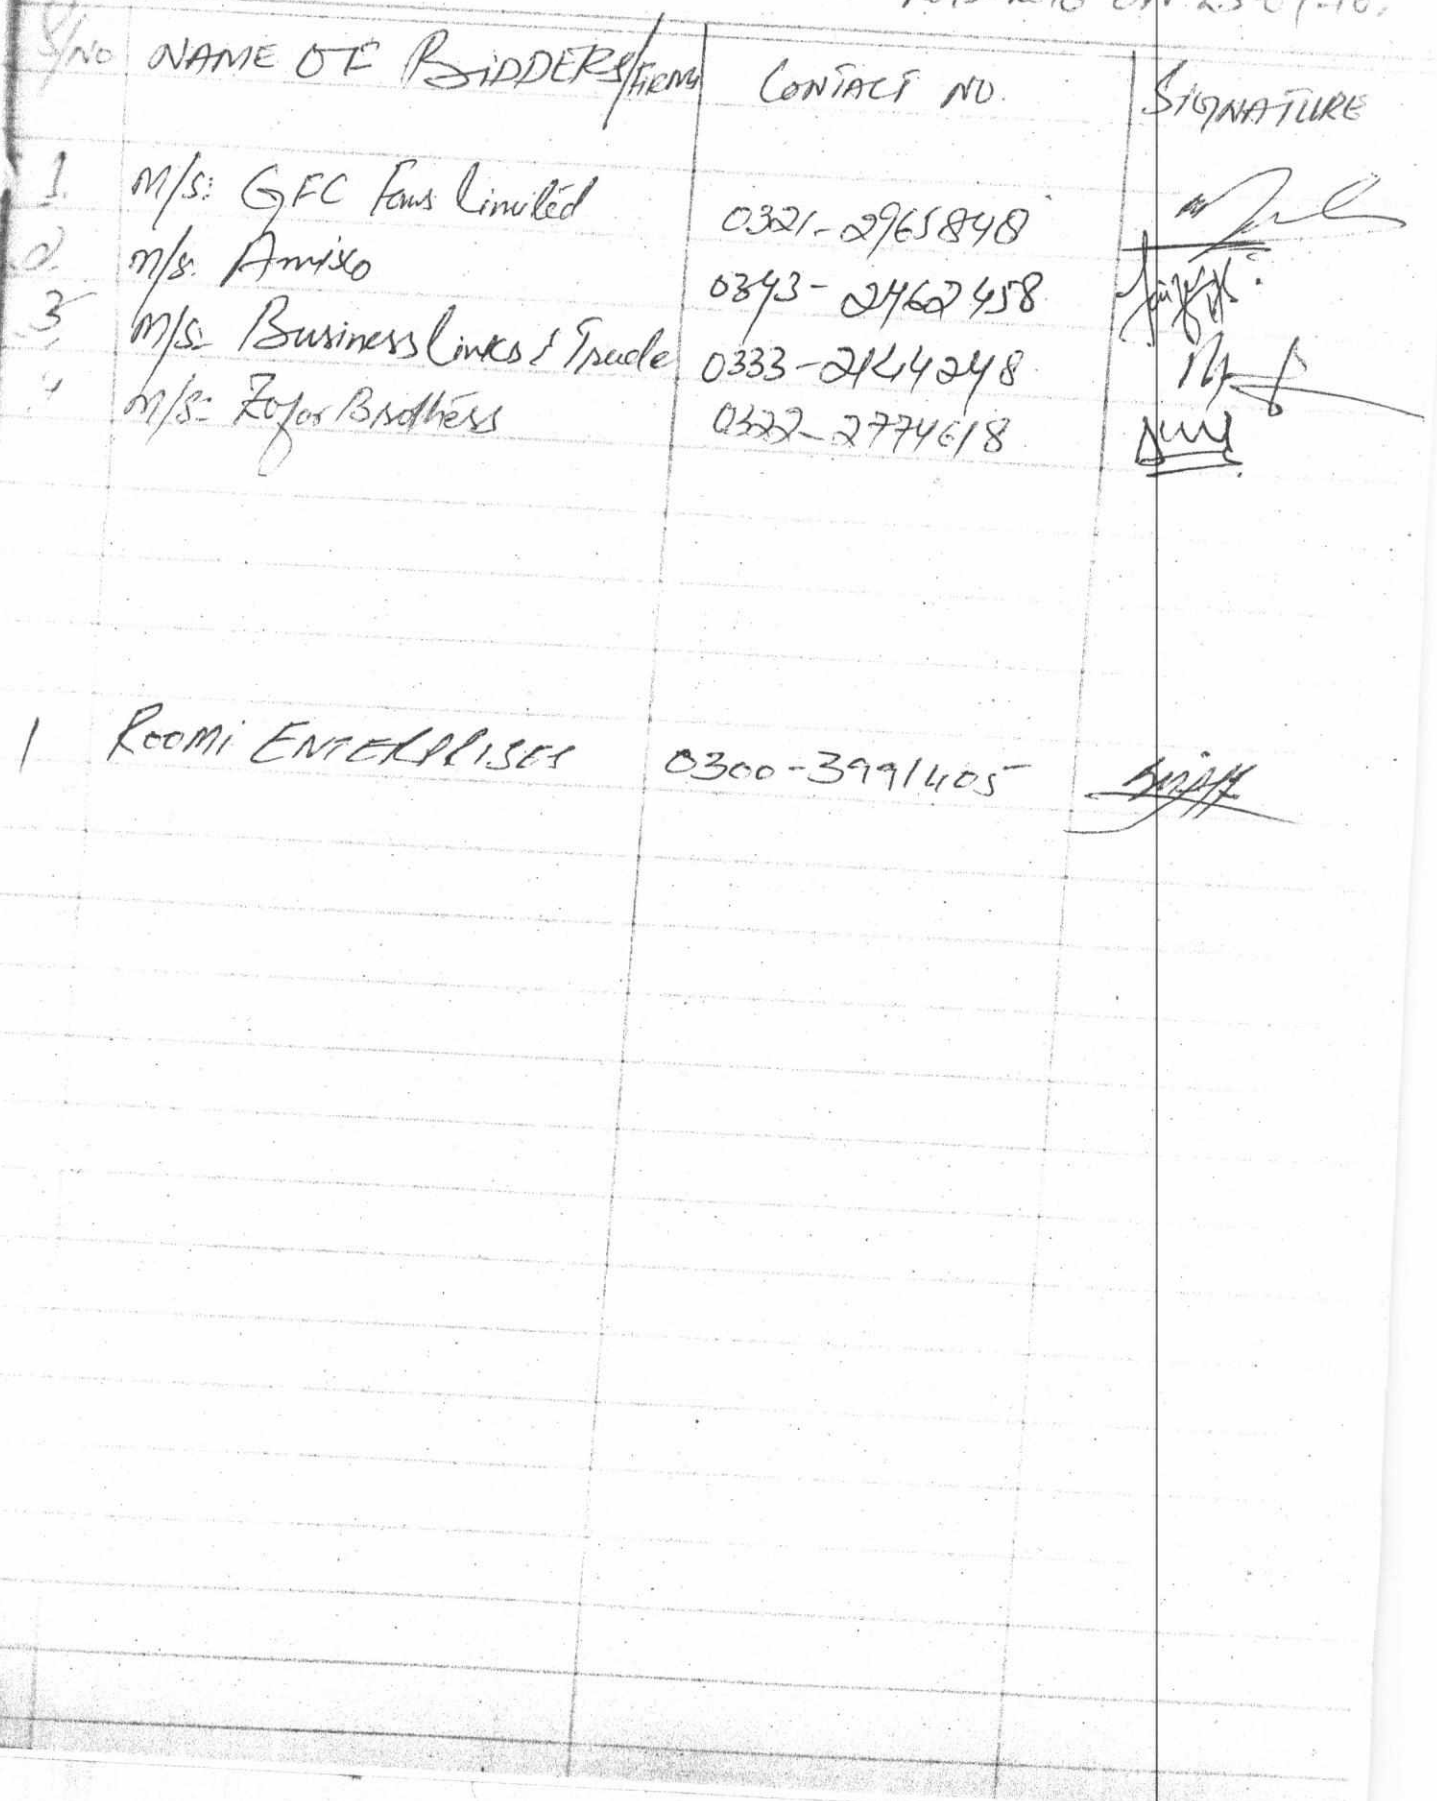 S/NO NAME OF BIDDERS/FIRMS CONTACT NO. SIGNATURE
1. M/S: GFC Fans Limited 0321-2965848
2. M/S. Amixo 0343-2462458
3 M/S- Business Links & Trade 0333-2144248
4 M/S- Zafar Brothers 0322-2774618
1 ROOMI ENTERPRISES 0300-3991405